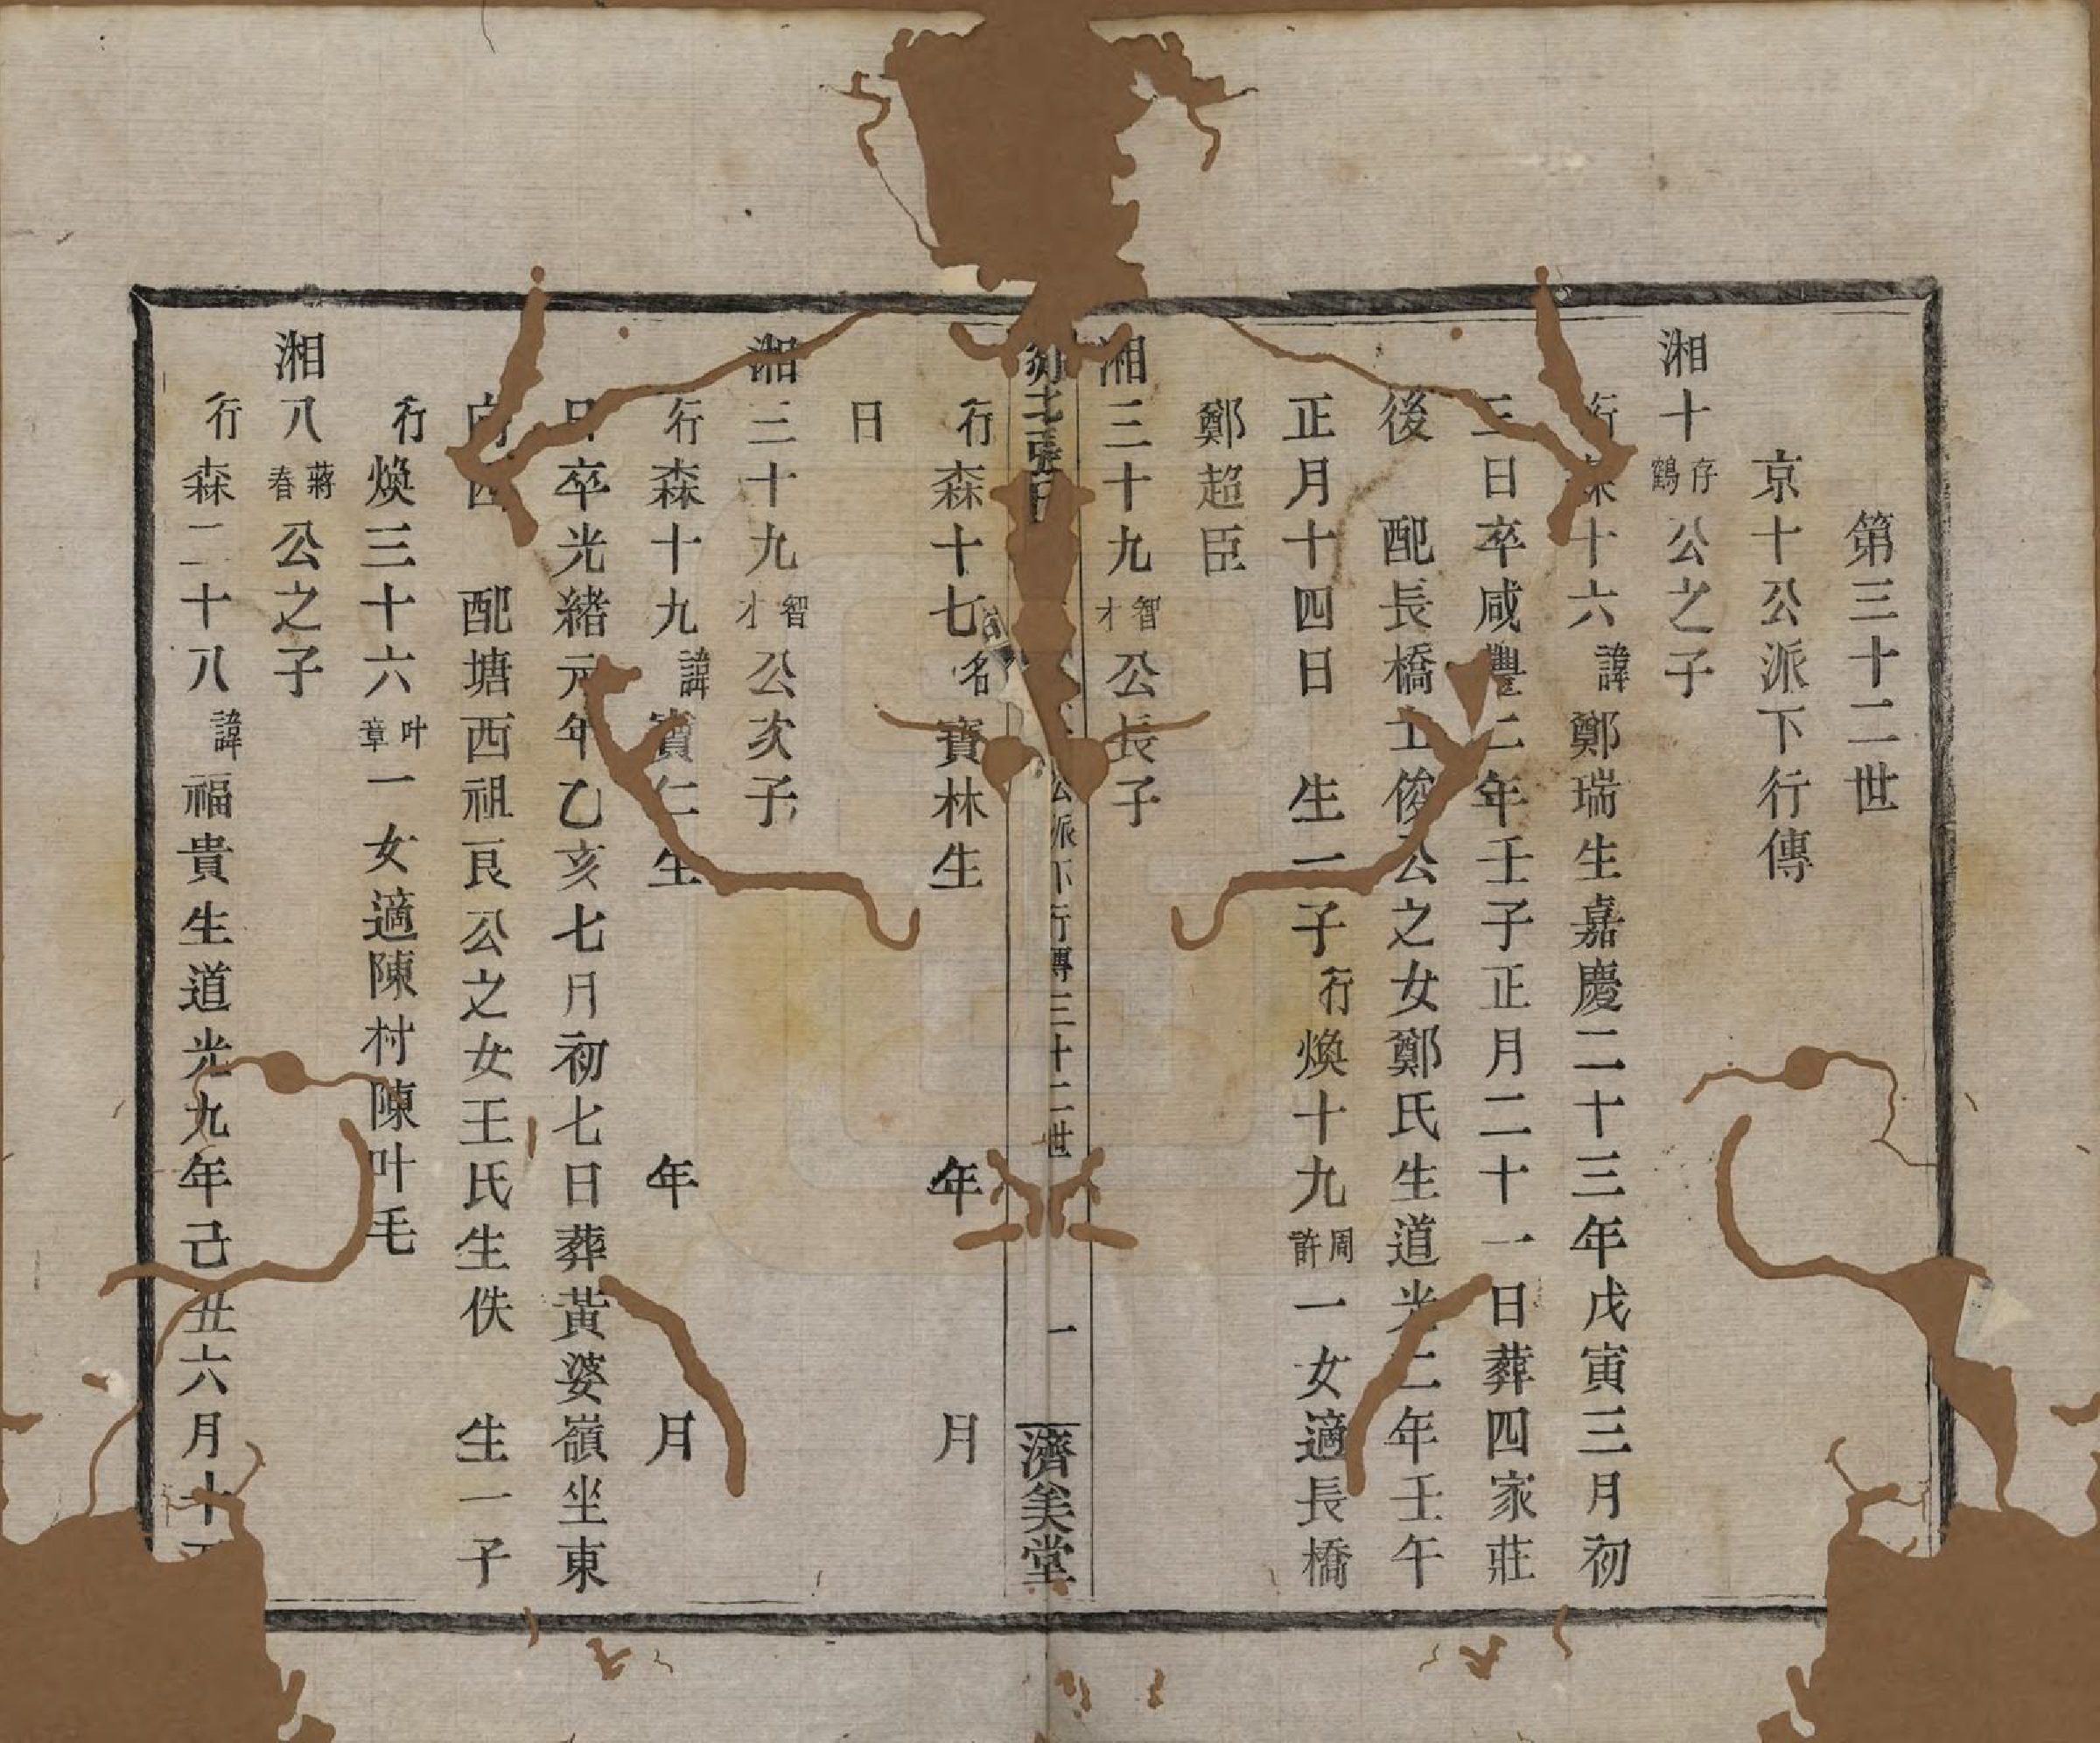 第三十二世
京十公派下行傳
湘十存鶴公之子
行森十六諱鄭瑞生嘉慶二十三年戊寅三月初
三日卒咸豐二年壬子正月二十一日葬四家莊
後 配長橋士俊公之女鄭氏生道光二年壬午
正月十四日 生一子行煥十九周許一女適長橋
鄭超臣
湘三十九智才公長子
行森十七名寶林生 年 月
日
公派下行傳三十二世 一 濟美堂
湘三十九智才公次子
行森十九諱寶仁生 年 月
日卒光緒元年乙亥七月初七日葬黃婆嶺坐東
向西 配塘西祖良公之女王氏生佚 生一子
行煥三十六叶章一女適陳村陳叶毛
湘八蔣春公之子
行森二十八諱福貴生道光九年己丑六月十